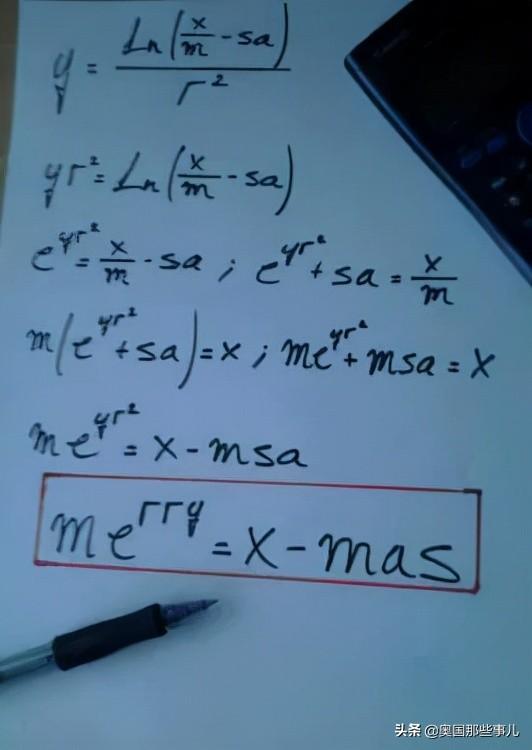 y = Ln(x/m - sa) / r²
yr² = Ln(x/m - sa)
e^yr² = x/m - sa ; e^yr² + sa = x/m
m(e^yr² + sa) = x ; me^yr² + msa = x
me^yr² = x - msa
me^rry = x - mas
头条 @奥国那些事儿